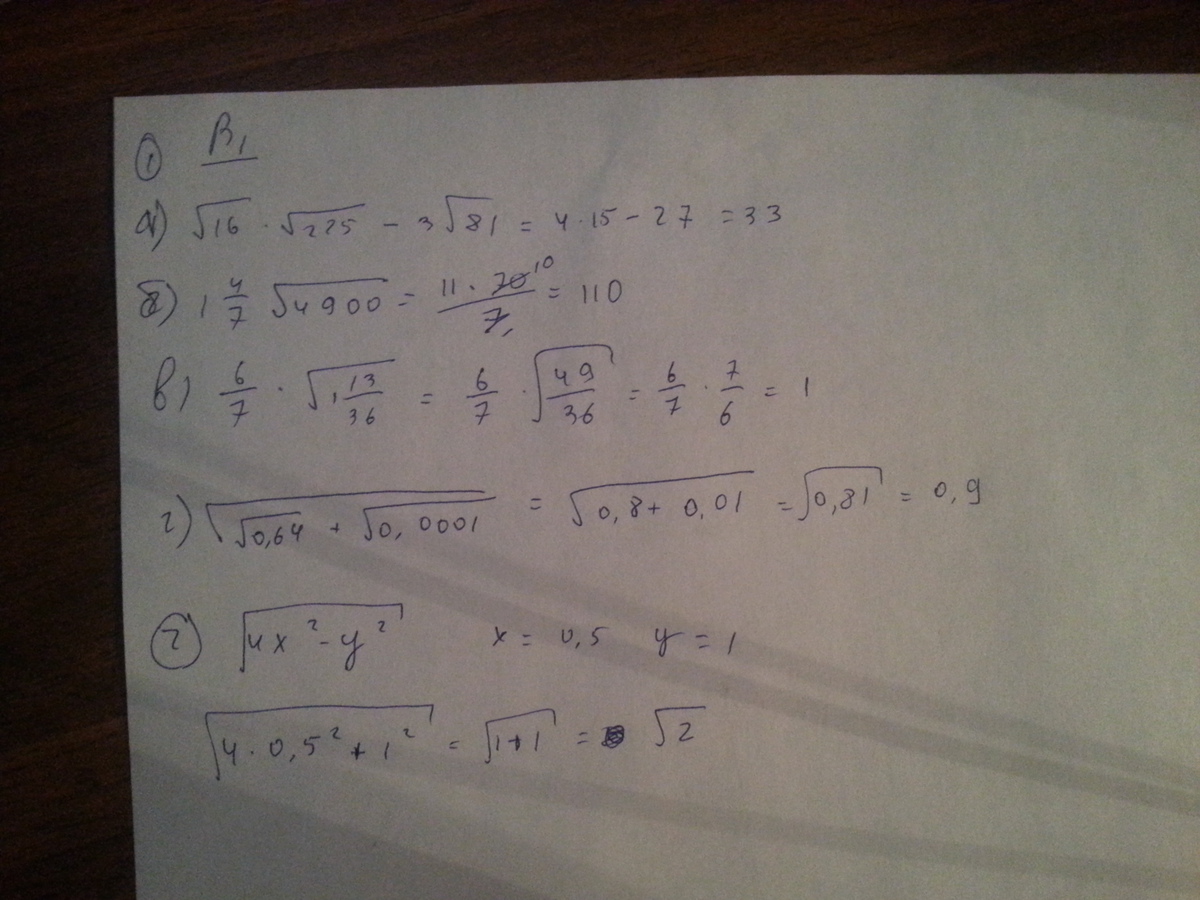 ① В1
а) √16 · √225 − 3√81 = 4·15 − 27 = 33
б) 1 4/7 √4900 = 11·70 10 / 7 1 = 110
в) 6/7 · √(1 13/36) = 6/7 · √(49/36) = 6/7 · 7/6 = 1
г) √(√0,64 + √0,0001) = √(0,8 + 0,01) = √0,81 = 0,9
② √(4x² − y²) x = 0,5 y = 1
√(4·0,5² + 1²) = √(1+1) = √2